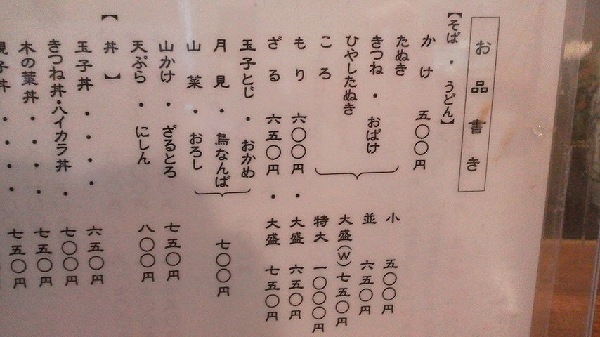 お品書き
【そば・うどん】
かけ 五〇〇円
たぬき
きつね・おばけ
ひやしたぬき
ころ
小 五〇〇円
並 六五〇円
大盛(W) 七五〇円
特大 一〇〇〇円
もり 六〇〇円・大盛 六五〇円
ざる 六五〇円・大盛 七五〇円
玉子とじ・おかめ
月見・鳥なんば
山菜・おろし
七〇〇円
山かけ・ざるとろ 七五〇円
天ぷら・にしん 八〇〇円
【丼】
玉子丼・・・・ 六五〇円
きつね丼・ハイカラ丼・ 七〇〇円
木の葉丼・・・・ 七五〇円
親子丼・・・・ 七五〇円